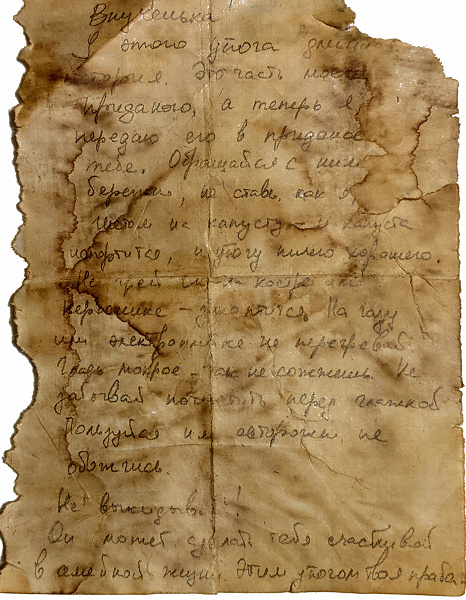 Внученька
У этого утюга длинная
история. Это часть моего
приданого, а теперь я
передаю его в приданое
тебе. Обращайся с ним
бережно, не ставь, как я
гнётом на капусту – и капуста
портится, и утюгу ничего хорошего.
Не грей его на костре или
керосинке – закоптится. На газу
или электроплитке не перегревай
Гладь мокрое – так не сожжёшь. Не
забывай почистить перед глажкой
Пользуйся им осторожно не
обожгись.
Не выкидывай!!
Он может сделать тебя счастливой
в семейной жизни. Этим утюгом твоя праба